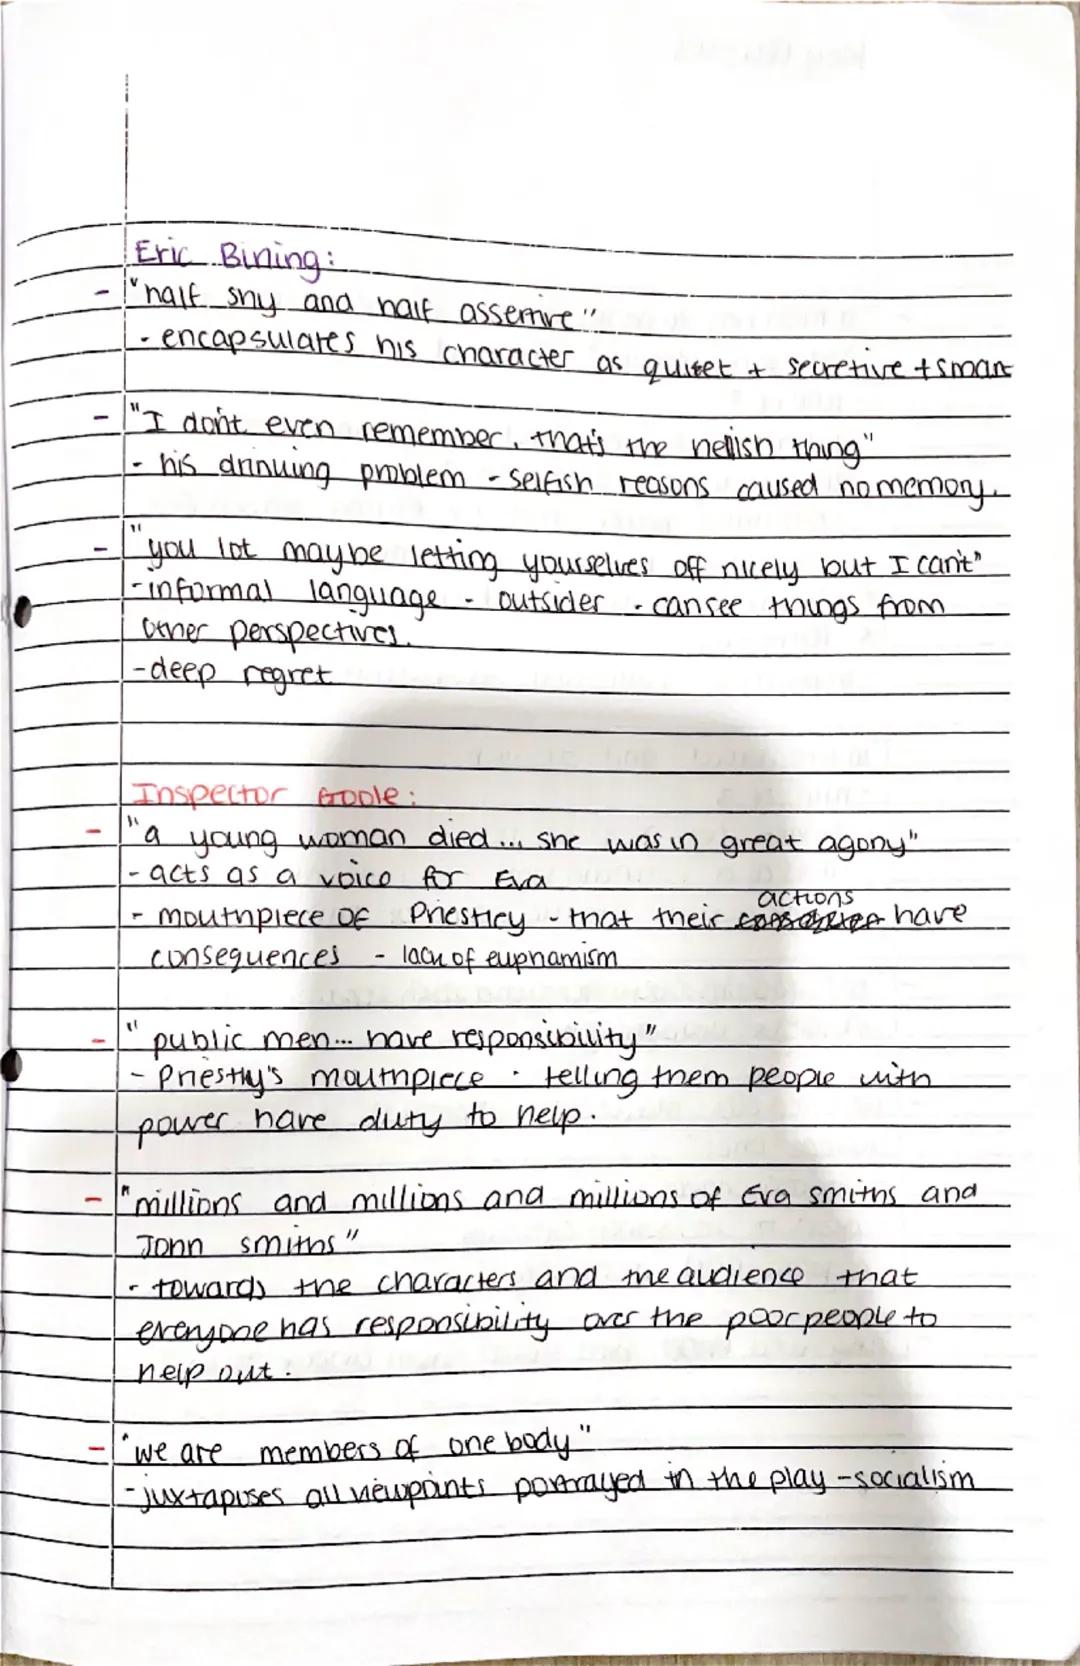 Eric Bining:
- "half shy and half assertive"
- encapsulates his character as quitet + secretive + smart
- "I don't even remember, that's the hellish thing"
- his drinking problem - selfish reasons caused no memory.
- "you lot may be letting yourselves off nicely but I can't"
- informal language - outsider - can see things from
other perspectives.
- deep regret
Inspector Goole:
- "a young woman died... she was in great agony"
- acts as a voice for Eva
actions
- mouthpiece of Priestley - that their have
consequences - lack of euphamism
- "public men... have responsibility"
- Priestly's mouthpiece - telling them people with
power have duty to help.
- "millions and millions and millions of Eva smiths and
John smiths"
- towards the characters and the audience that
everyone has responsibility over the poor people to
help out.
- "we are members of one body"
- juxtaposes all viewpoints portrayed in the play - socialism